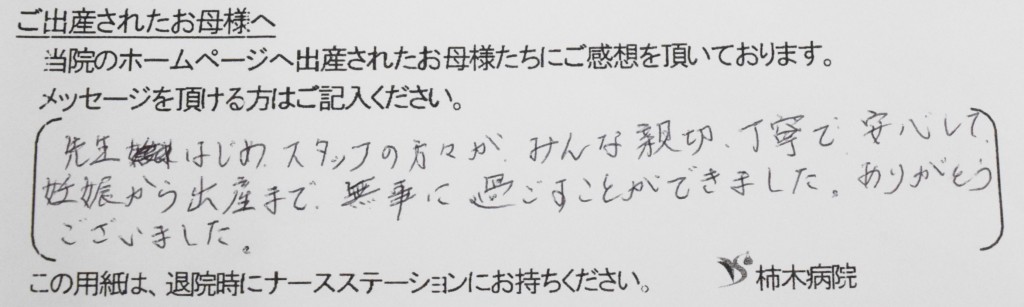 ご出産されたお母様へ
当院のホームページへ出産されたお母様たちにご感想を頂いております。
メッセージを頂ける方はご記入ください。
先生はじめ、スタッフの方々が、みんな親切、丁寧で、安心して、
妊娠から出産まで、無事に過ごすことができました。ありがとう
ございました。
この用紙は、退院時にナースステーションにお持ちください。
柿木病院